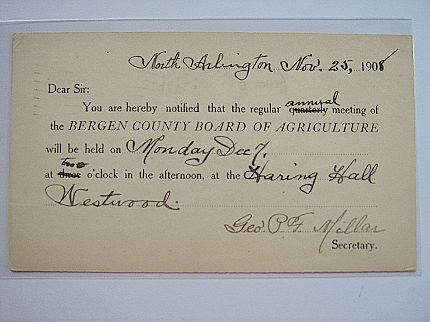 North Arlington Nov. 25, 1908
Dear Sir:
You are hereby notified that the regular quarterly annual meeting of
the BERGEN COUNTY BOARD OF AGRICULTURE
will be held on Monday Dec 7.
at three two o'clock in the afternoon, at the Haring Hall
Westwood.
Geo. P. F. Millar
Secretary.